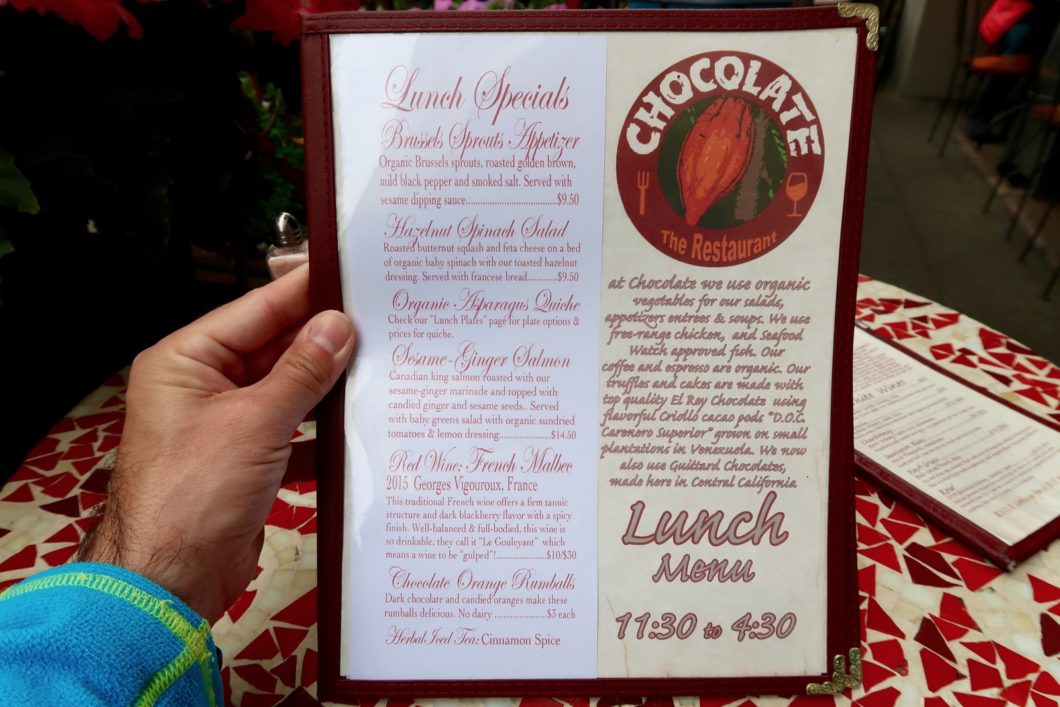 Lunch Specials
Brussels Sprouts Appetizer
Organic Brussels sprouts, roasted golden brown,
mild black pepper and smoked salt. Served with
sesame dipping sauce.................................$9.50
Hazelnut Spinach Salad
Roasted butternut squash and feta cheese on a bed
of organic baby spinach with our toasted hazelnut
dressing. Served with francese bread.............$9.50
Organic Asparagus Quiche
Check our "Lunch Plates" page for plate options &
prices for quiche.
Sesame-Ginger Salmon
Canadian king salmon roasted with our
sesame-ginger marinade and topped with
candied ginger and sesame seeds.. Served
with baby greens salad with organic sundried
tomatoes & lemon dressing.......................$14.50
Red Wine: French Malbec
2015 Georges Vigouroux, France
This traditional French wine offers a firm tannic
structure and dark blackberry flavor with a spicy
finish. Well-balanced & full-bodied, this wine is
so drinkable, they call it "Le Gouleyant" which
means a wine to be "gulped"!.......................$10/$30
Chocolate Orange Rumballs
Dark chocolate and candied oranges make these
rumballs delicious. No dairy .....................$3 each
Herbal Iced Tea: Cinnamon Spice
CHOCOLATE
The Restaurant
at Chocolate we use organic
vegetables for our salads,
appetizers entrees & soups. We use
free-range chicken, and Seafood
Watch approved fish. Our
coffee and espresso are organic. Our
truffles and cakes are made with
top quality El Rey Chocolate using
flavorful Criollo cacao pods "D.O.C.
Carenero Superior" grown on small
plantations in Venezuela. We now
also use Guittard Chocolates,
made here in Central California
Lunch
Menu
11:30 to 4:30